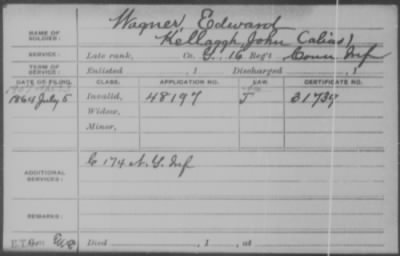 NAME OF SOLDIER: Wagner, Edward
Kellaggh, John (alias)
SERVICE: Late rank, Co. G, 16 Reg't Conn Inf
TERM OF SERVICE: Enlisted , 1 Discharged , 1
DATE OF FILING. CLASS. APPLICATION NO. LAW. CERTIFICATE NO.
1864 July 5 Invalid, 48197 31739
Widow,
Minor,
ADDITIONAL SERVICES: C 174 N.Y. Inf
REMARKS:
Died , 1 , at